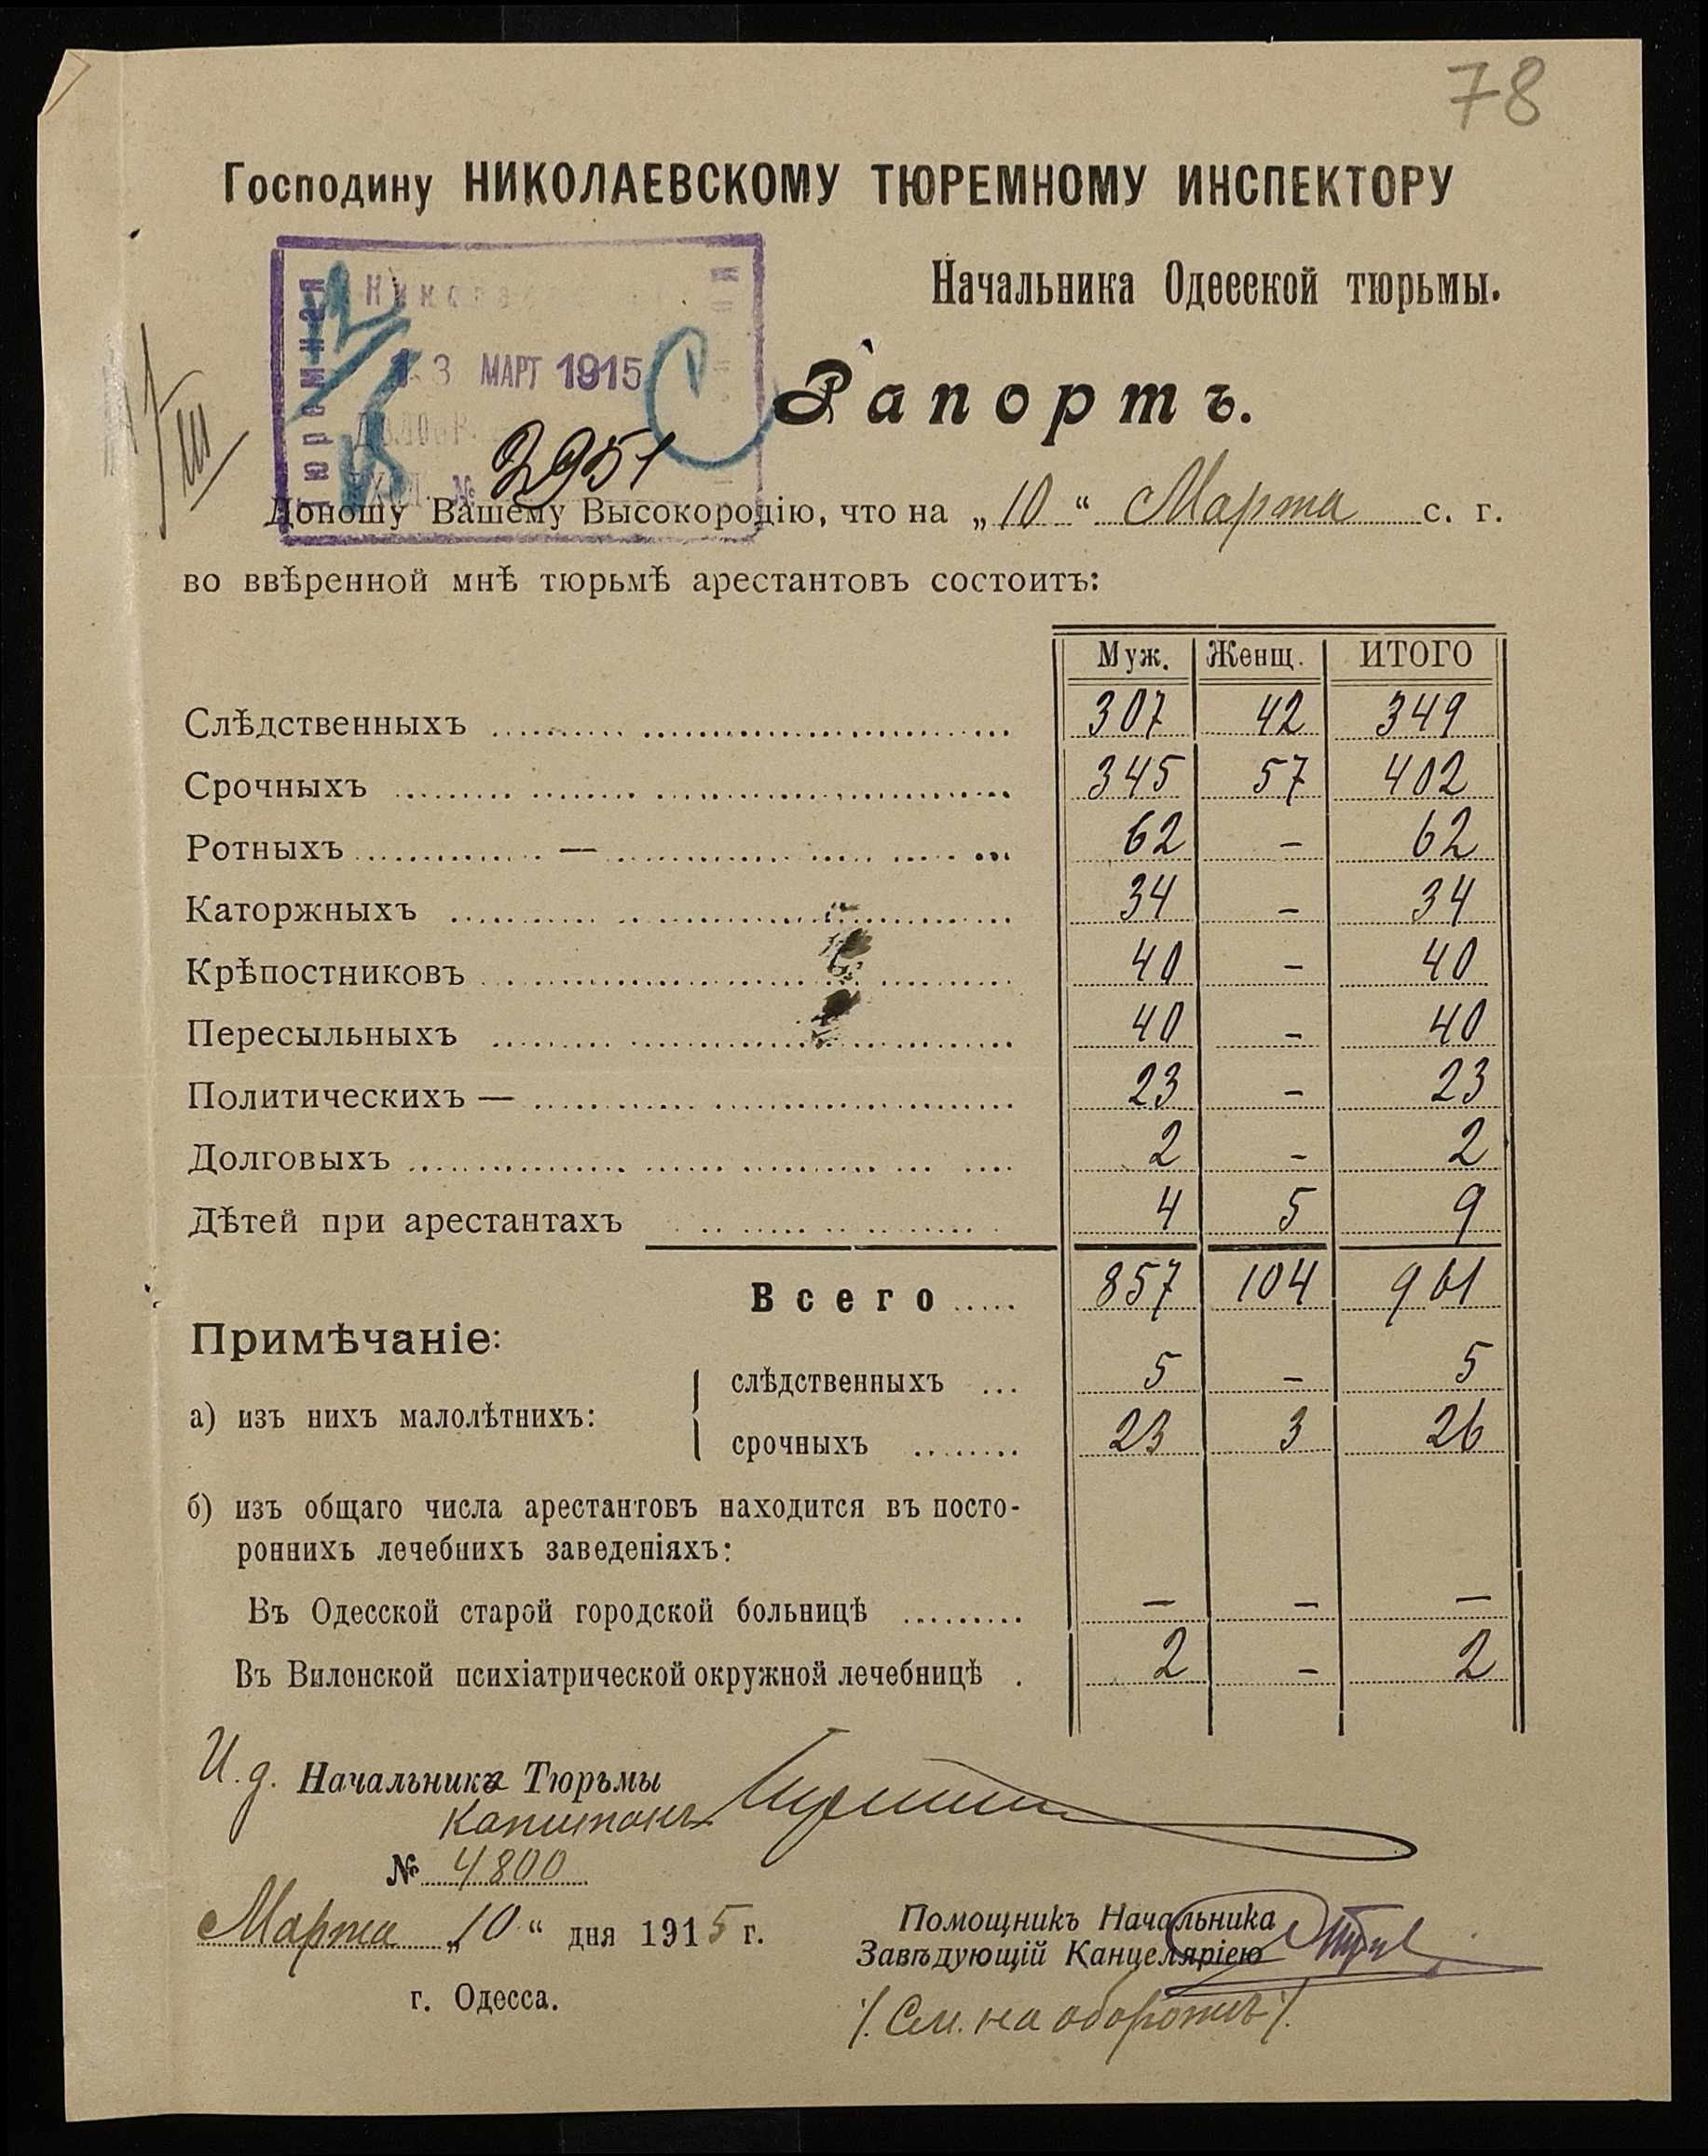 78
Господину НИКОЛАЕВСКОМУ ТЮРЕМНОМУ ИНСПЕКТОРУ
Начальника Одесской тюрьмы.
3 МАРТ 1915
Рапортъ.
№ 2951
Доношу Вашему Высокородію, что на „10“ Марта с. г.
во ввѣренной мнѣ тюрьмѣ арестантовъ состоитъ:
Муж. Женщ. ИТОГО
Слѣдственныхъ 307 42 349
Срочныхъ 345 57 402
Ротныхъ — 62 - 62
Каторжныхъ 34 - 34
Крѣпостниковъ 40 - 40
Пересыльныхъ 40 - 40
Политическихъ — 23 - 23
Долговыхъ 2 - 2
Дѣтей при арестантахъ 4 5 9
Всего 857 104 961
Примѣчаніе:
слѣдственныхъ 5 - 5
а) изъ нихъ малолѣтнихъ:
срочныхъ 23 3 26
б) изъ общаго числа арестантовъ находится въ посто-
роннихъ лечебнихъ заведеніяхъ:
Въ Одесской старой городской больницѣ — — —
Въ Виленской психіатрической окружной лечебницѣ 2 - 2
И. д. Начальника Тюрьмы
Капитанъ
№ 4800
Марта „10“ дня 1915 г.
Помощникъ Начальника
Завѣдующій Канцеляріею
г. Одесса.
/. См. на оборотѣ /.